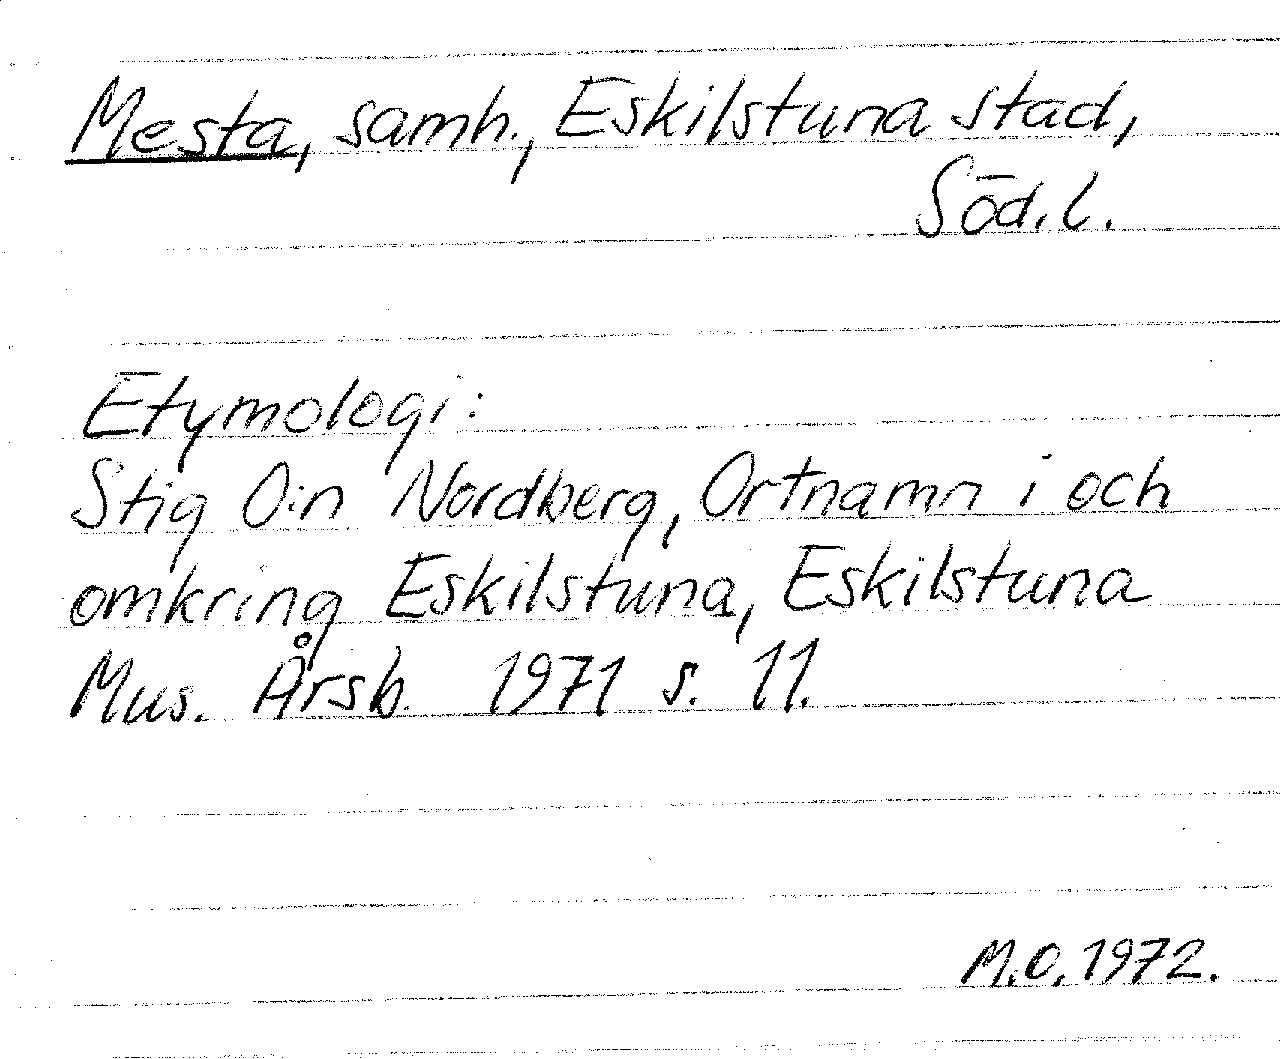 Mesta, samh., Eskilstuna stad,
Söd. l.
Etymologi:
Stig O:n Nordberg, Ortnamn i och
omkring Eskilstuna, Eskilstuna
Mus. Årsb. 1971 s. 11.
M.O. 1972.